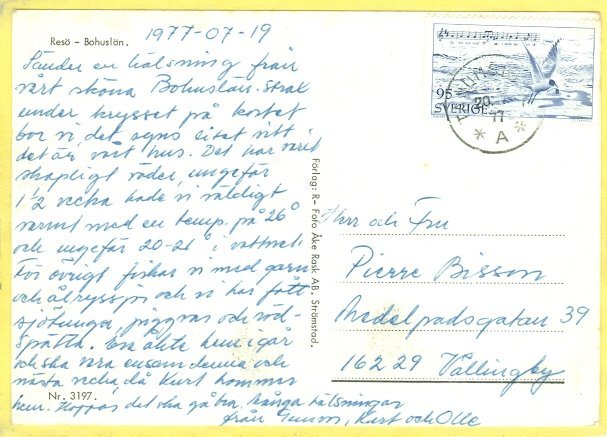 Resö - Bohuslän.
1977-07-19
Sänder en hälsning från
vårt sköna Bohuslän.
under krysset på kortet
bor vi, det syns litet vitt
det är vårt hus. Det har varit
skapligt väder, ungefär
1/2 vecka hade vi väldigt
varmt med en temp. på 26°
och ungefär 20-21° i vattnet.
För övrigt fiskar vi med garn
och ålryssja och vi har fått
sjötunga, piggvar och röd-
spätta. åkte hem igår
och ska vara ensam denna och
nästa vecka, då Kurt kommer
hem. Hoppas det ska gå bra. Många hälsningar
från Gunvor, Kurt och Olle
Nr. 3197.
Förlag: R- Foto Åke Rask AB. Strömstad.
95
SVERIGE
20
77
* A *
Herr och Fru
Pierre Bisson
Medelpadsgatan 39
162 29 Vällingby